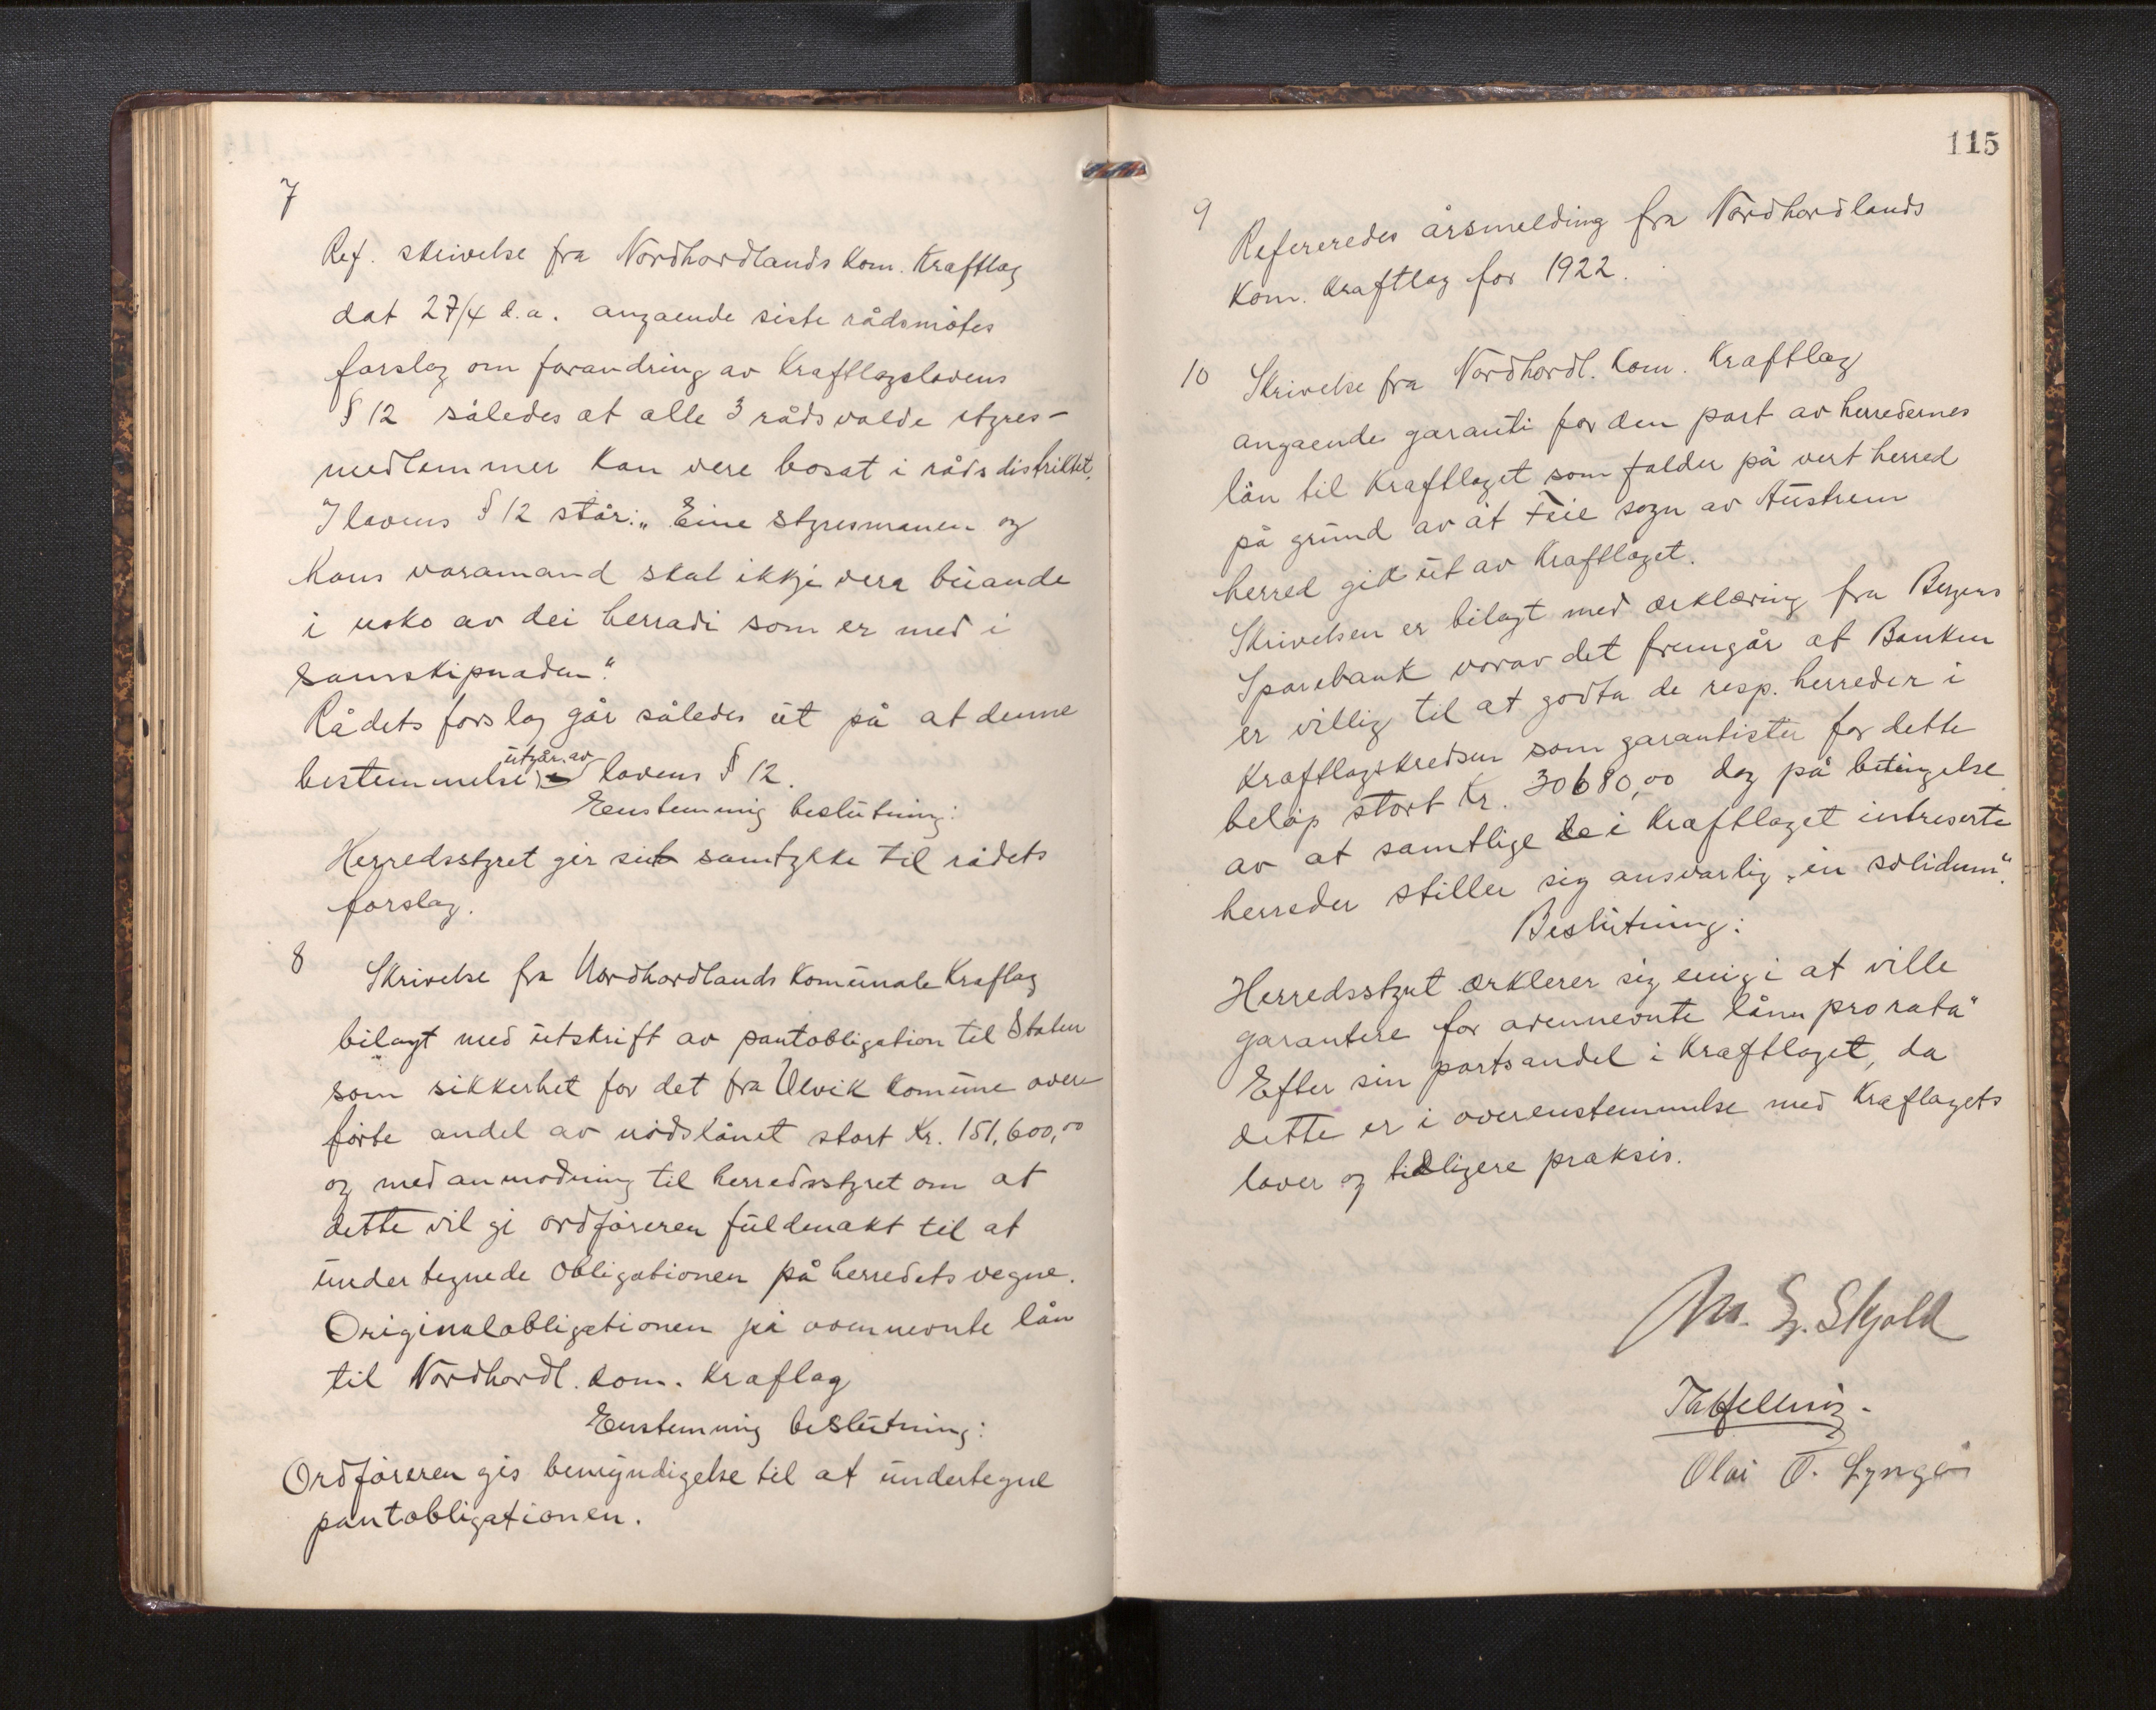 7
Ref. skrivelse fra Nordhordlands Kom. Kraftlag
dat 27/4 d.a. angaende siste rådsmøtes
forslag om forandring av Kraftlagslovens
§ 12 således at alle 3 rådsvalde styres-
medlemmer kan vere bosat i rådsdistriktet.
I lovens § 12 står: „Eine styresmanen og
hans varamand skal ikkje vera buande
i noko av dei herradi som er med i
samskipnaden“.
Rådets forslag går således ut på at denne
bestemmelse utgår av lovens § 12.
Enstemmig beslutning:
Herredsstyret gir sit samtykke til rådets
forslag.
8
Skrivelse fra Nordhordlands Komunale Kraflag
bilagt med utskrift av pantobligation til Staten
som sikkerhet for det fra Ulvik komune over-
førte andel av nødslånet stort Kr. 151,600,00
og med anmodning til herredsstyret om at
dette vil gi ordføreren fuldmakt til at
undertegnede obligationen på herredets vegne.
Originalobligationen på ovennevnte lån
til Nordhordl. kom. Kraflag
Enstemmig beslutning:
Ordføreren gis bemyndigelse til at undertegne
pantobligationen.
115
9
Refereredes årsmelding fra Nordhordlands
Kom. Kraftlag for 1922.
10
Skrivelse fra Nordhordl. Kom. Kraftlag
angaende garanti for den part av herredernes
lån til Kraftlaget som falder på vert herred
på grund av at Feie sogn av Austrem
herred gik ut av Kraftlaget.
Skrivelsen er bilagt med ærklæring fra Bergens
Sparebank vorav det fremgår at Banken
er villig til at godta de resp. herreder i
Kraftlagskredsen som garantister for dette
beløp stort Kr. 30680,00 dog på betingelse
av at samtlige de i Kraftlaget intreserte
herreder stiller sig ansvarlig „in solidum“.
Beslutning:
Herredsstyret ærklerer sig enig i at ville
garantere for ovennevnte lånn pro rata“
Efter sin partsandel i Kraftlaget, da
dette er i overenstemmelse med Kraflagets
lover og tidligere praksis.
M. G. Skjold
Olai O. Lyngø